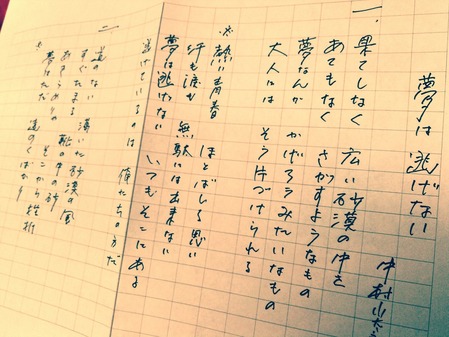 夢は逃げない
中村
一、
果てしなく 広い砂漠の中を
あてもなく さがすようなもの
夢なんか かげろうみたいなもの
大人には そう片づけられる
※熱い青春 ほとばしる思い
汗も涙も 無駄には出来ない
夢は逃げない いつもそこにある
逃げているのは 俺たちの方だ
二、
道のない 渇いた砂漠の風
靴の中の砂
夢はただ